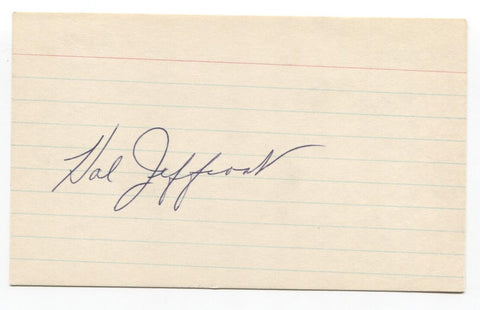 Hal Jeffcoat